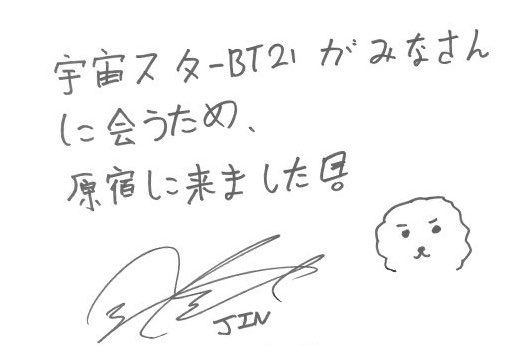 宇宙スターBT21がみなさん
に会うため、
原宿に来ました!!
JIN